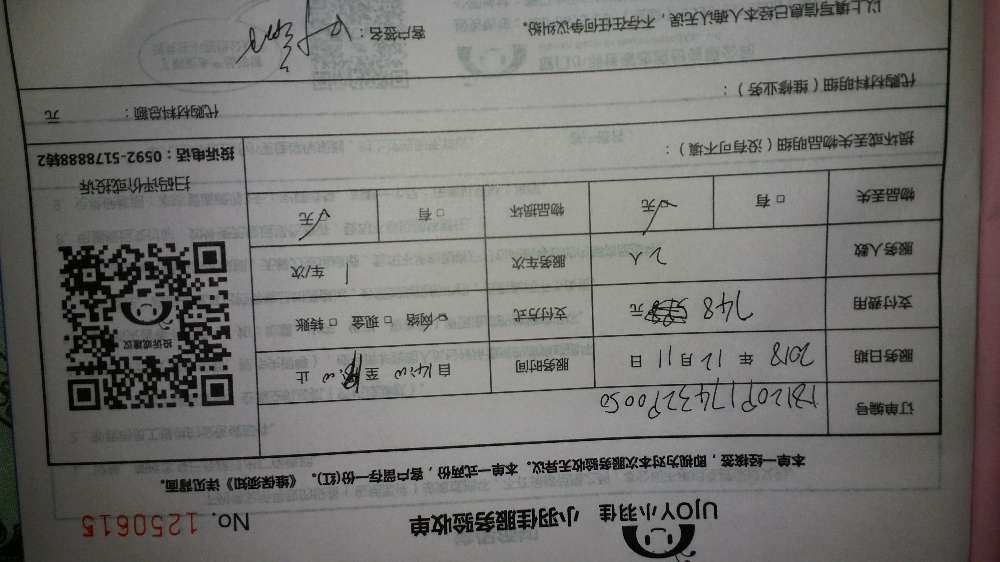 UJOY小羽佳 小羽佳服务验收单 No. 1250615
本单一经接签，即视为对本次服务验收无异议。本单一式两份，客户留存一份(红)。《维保须知》详见背面。
订单编号
服务日期 2018 年 12 月 11 日 服务时间 自 14:00 至 18:00 止
支付费用 748 元 支付方式 网络 □ 现金 □ 转账
服务人数 2人 服务车次 1 车/次
物品丢失 □ 有 □ 无 物品损坏 □ 有 □ 无
投诉或建议
扫码评价或投诉
投诉电话：0592-5178888转2
损坏或丢失物品明细（没有可不填）：
代购材料明细（维修业务）：
代购材料总额： 元
以上填写信息已经本人确认无误，不存在任何争议纠纷。 客户签名：